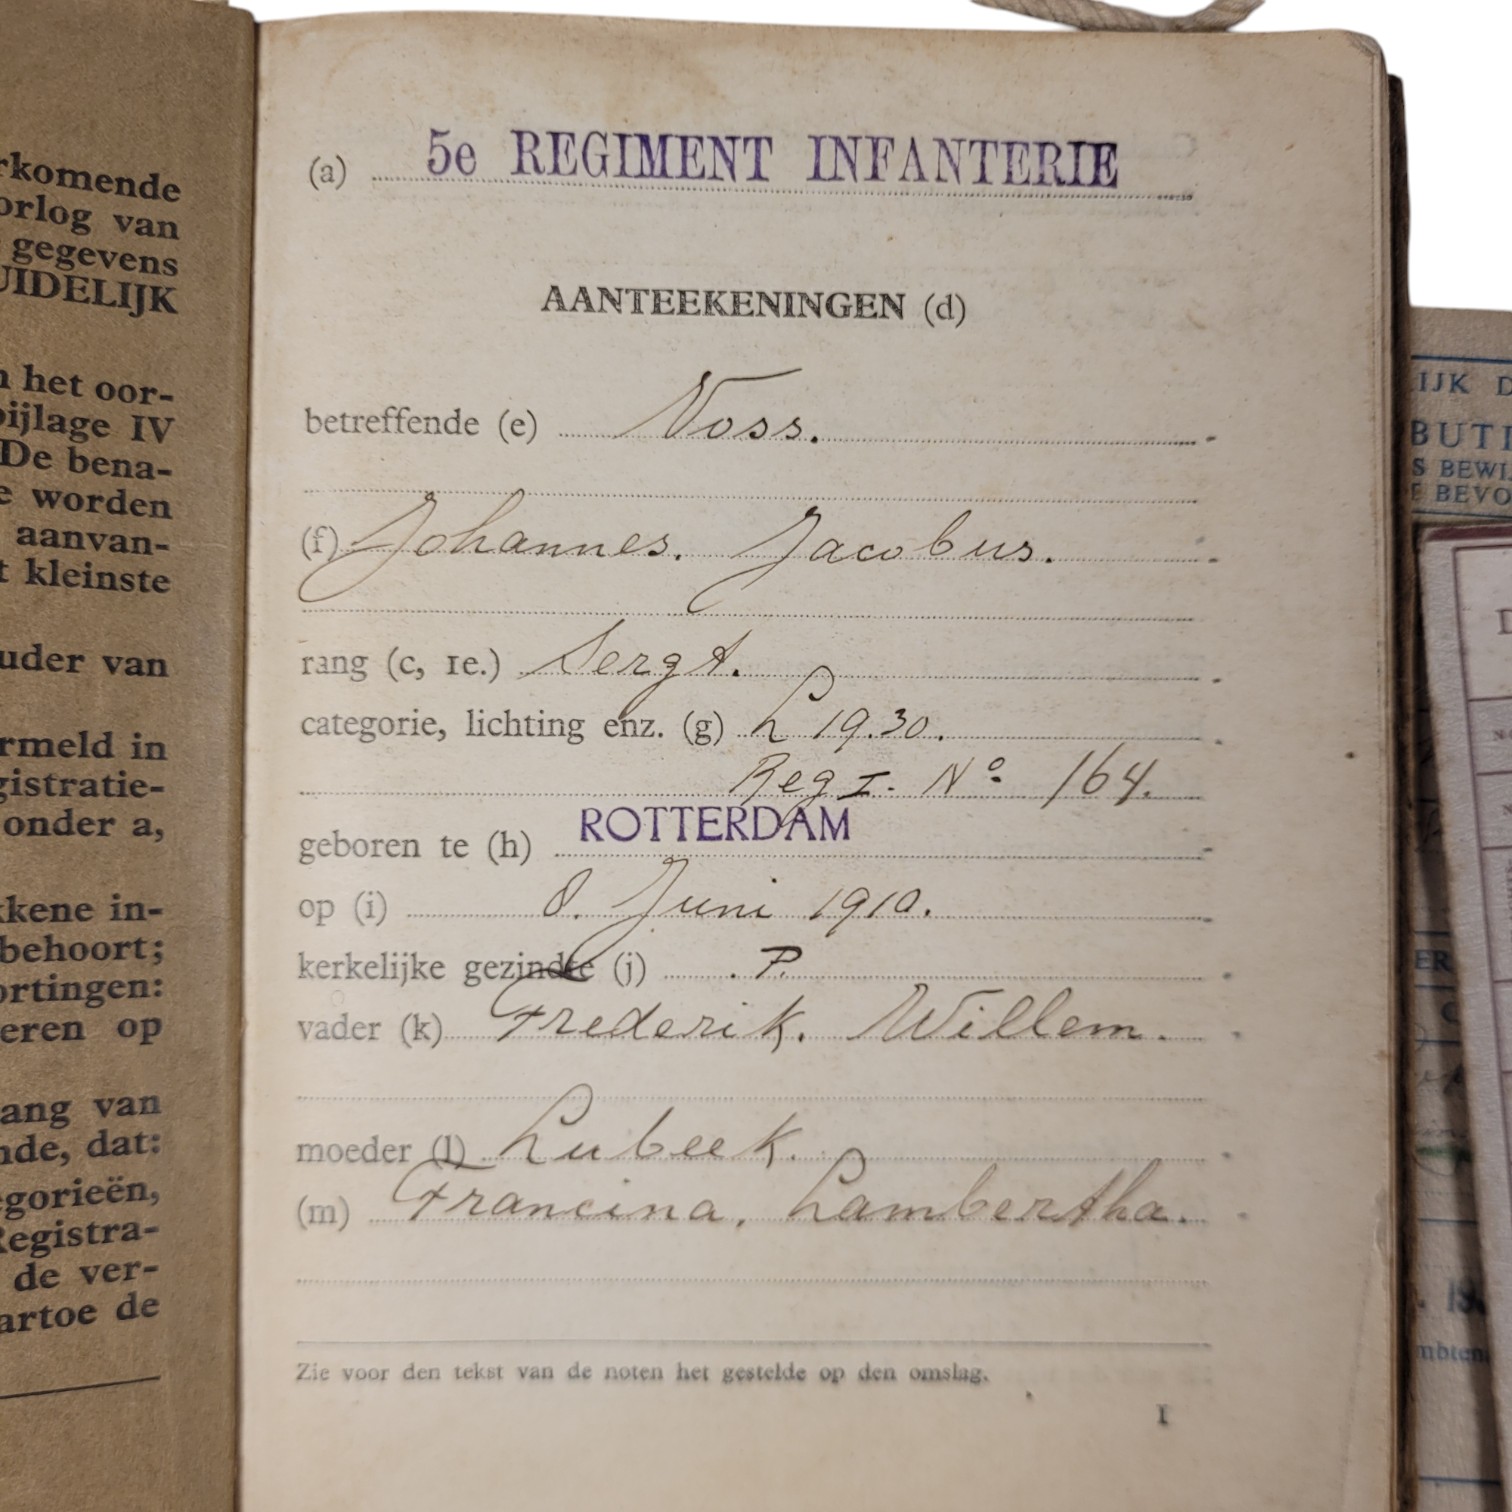 rkomende
orlog van
gegevens
UIDELIJK
n het oor-
bijlage IV
De bena-
e worden
aanvan-
t kleinste
uder van
rmeld in
gistratie-
onder a,
kkene in-
behoort;
ortingen:
eren op
ang van
nde, dat:
egorieën,
Registra-
de ver-
artoe de
(a) 5e REGIMENT INFANTERIE
AANTEEKENINGEN (d)
betreffende (e) Voss.
(f) Johannes. Jacobus.
rang (c, 1e.) Sergt.
categorie, lichting enz. (g) L 19.30.
Reg I. No 164.
geboren te (h) ROTTERDAM
op (i) 8. Juni 1910.
kerkelijke gezindte (j) P.
vader (k) Frederik. Willem.
moeder (l) Lubeek.
(m) Francina. Lambertha.
Zie voor den tekst van de noten het gestelde op den omslag.
1
IJK D
BUTI
S BEWI
E BEVO
D
ER
mbten